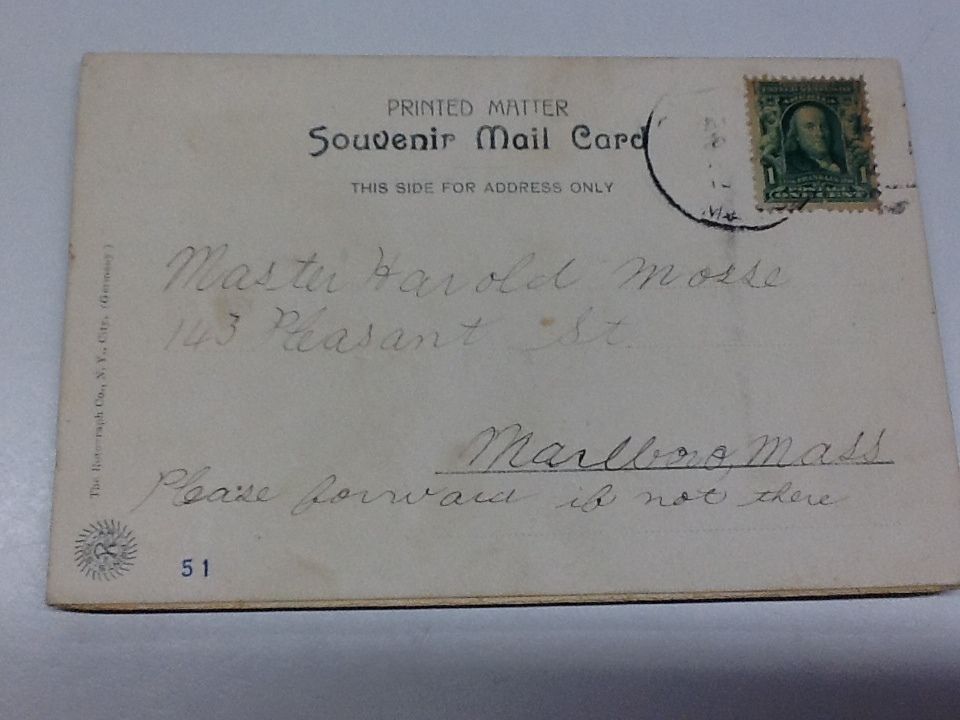 PRINTED MATTER
Souvenir Mail Card
THIS SIDE FOR ADDRESS ONLY
1 1
Master Harold Mosse
143 Pleasant St.
Marlboro, Mass
Please forward if not there
The Rotograph Co., N. Y. City. (Germany)
R
51